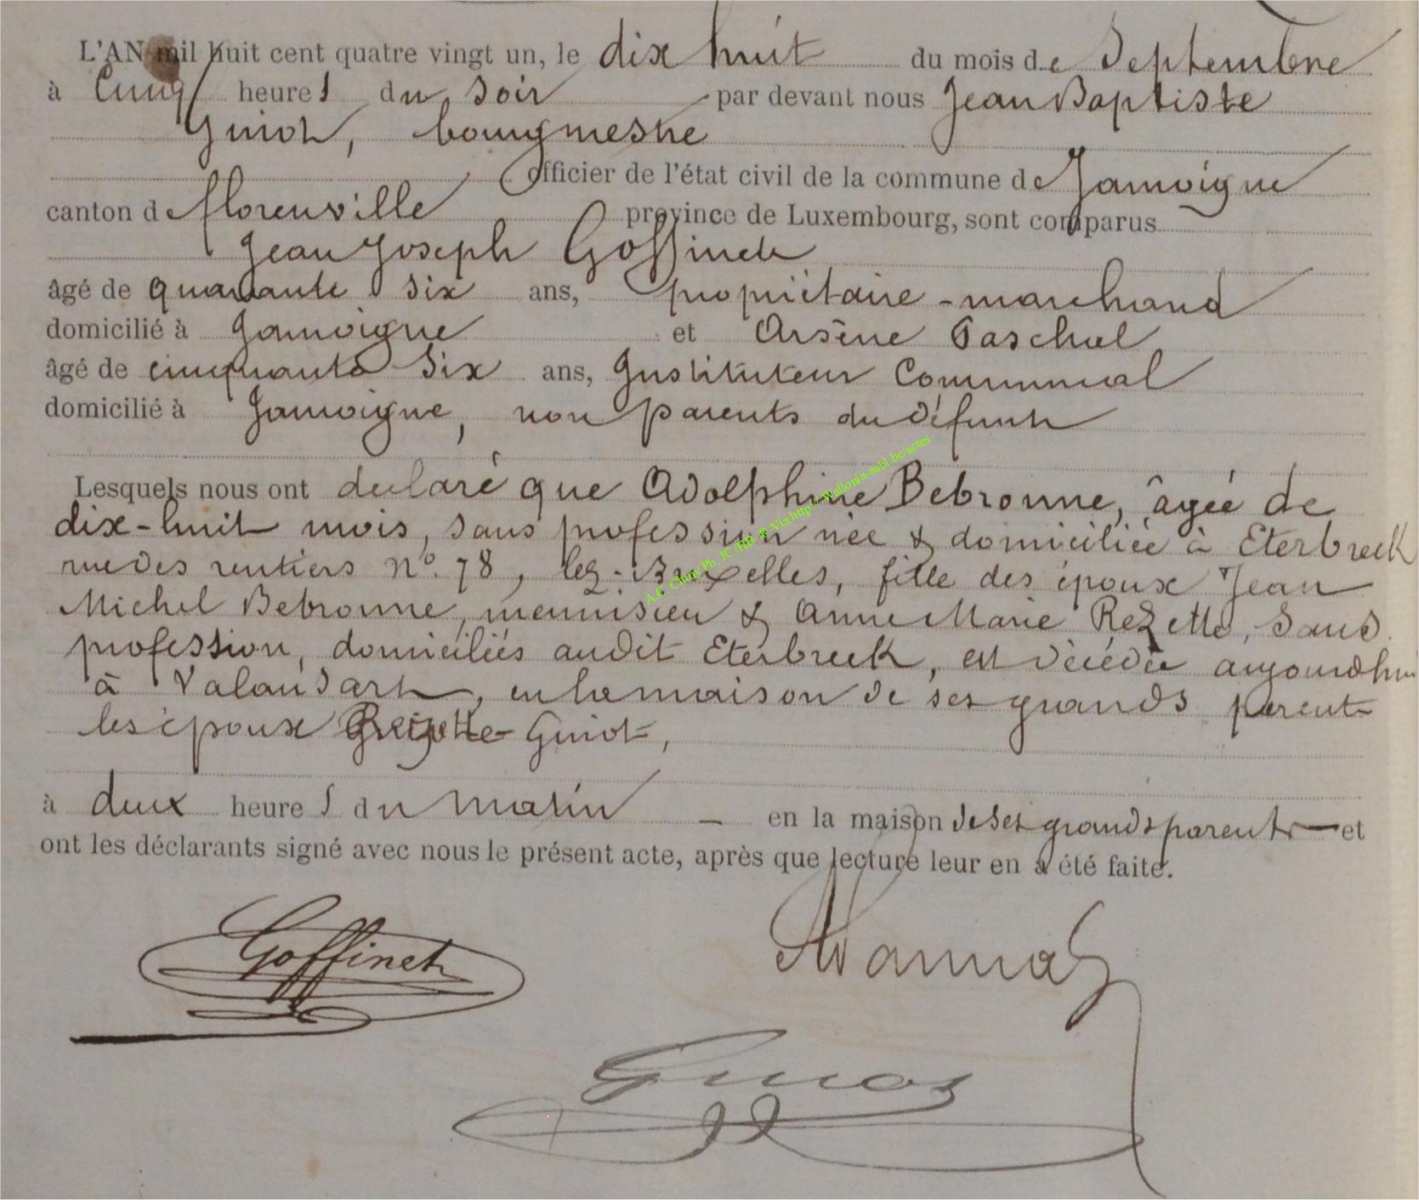 L'AN mil huit cent quatre vingt un, le dix huit du mois de Septembre
à Cinq heures du soir par devant nous Jean Baptiste
Guiot, bourgmestre
officier de l'état civil de la commune de Jamoigne
canton de florenville province de Luxembourg, sont comparus
Jean Joseph Goffinet
âgé de quarante six ans, propriétaire-marchand
domicilié à Jamoigne et Arsène Paschal
âgé de cinquante six ans, Instituteur Communal
domicilié à Jamoigne, non parents du défunt
Lesquels nous ont declaré que Adolphine Bebronne, âgée de
dix-huit mois, sans profession née & domiciliée à Eterbreck
rue des rentiers n° 78, lez-Bruxelles, fille des époux Jean
Michel Bebronne, menuisier & Anne Marie Rezette, sans
profession, domiciliés audit Eterbreck, est décédée aujourdhui
à Valansart, en la maison de ses grands parents
les époux Rezette-Guiot,
à deux heures du matin en la maison de ses grands parents et
ont les déclarants signé avec nous le présent acte, après que lecture leur en a été faite.
Goffinet
Guiot